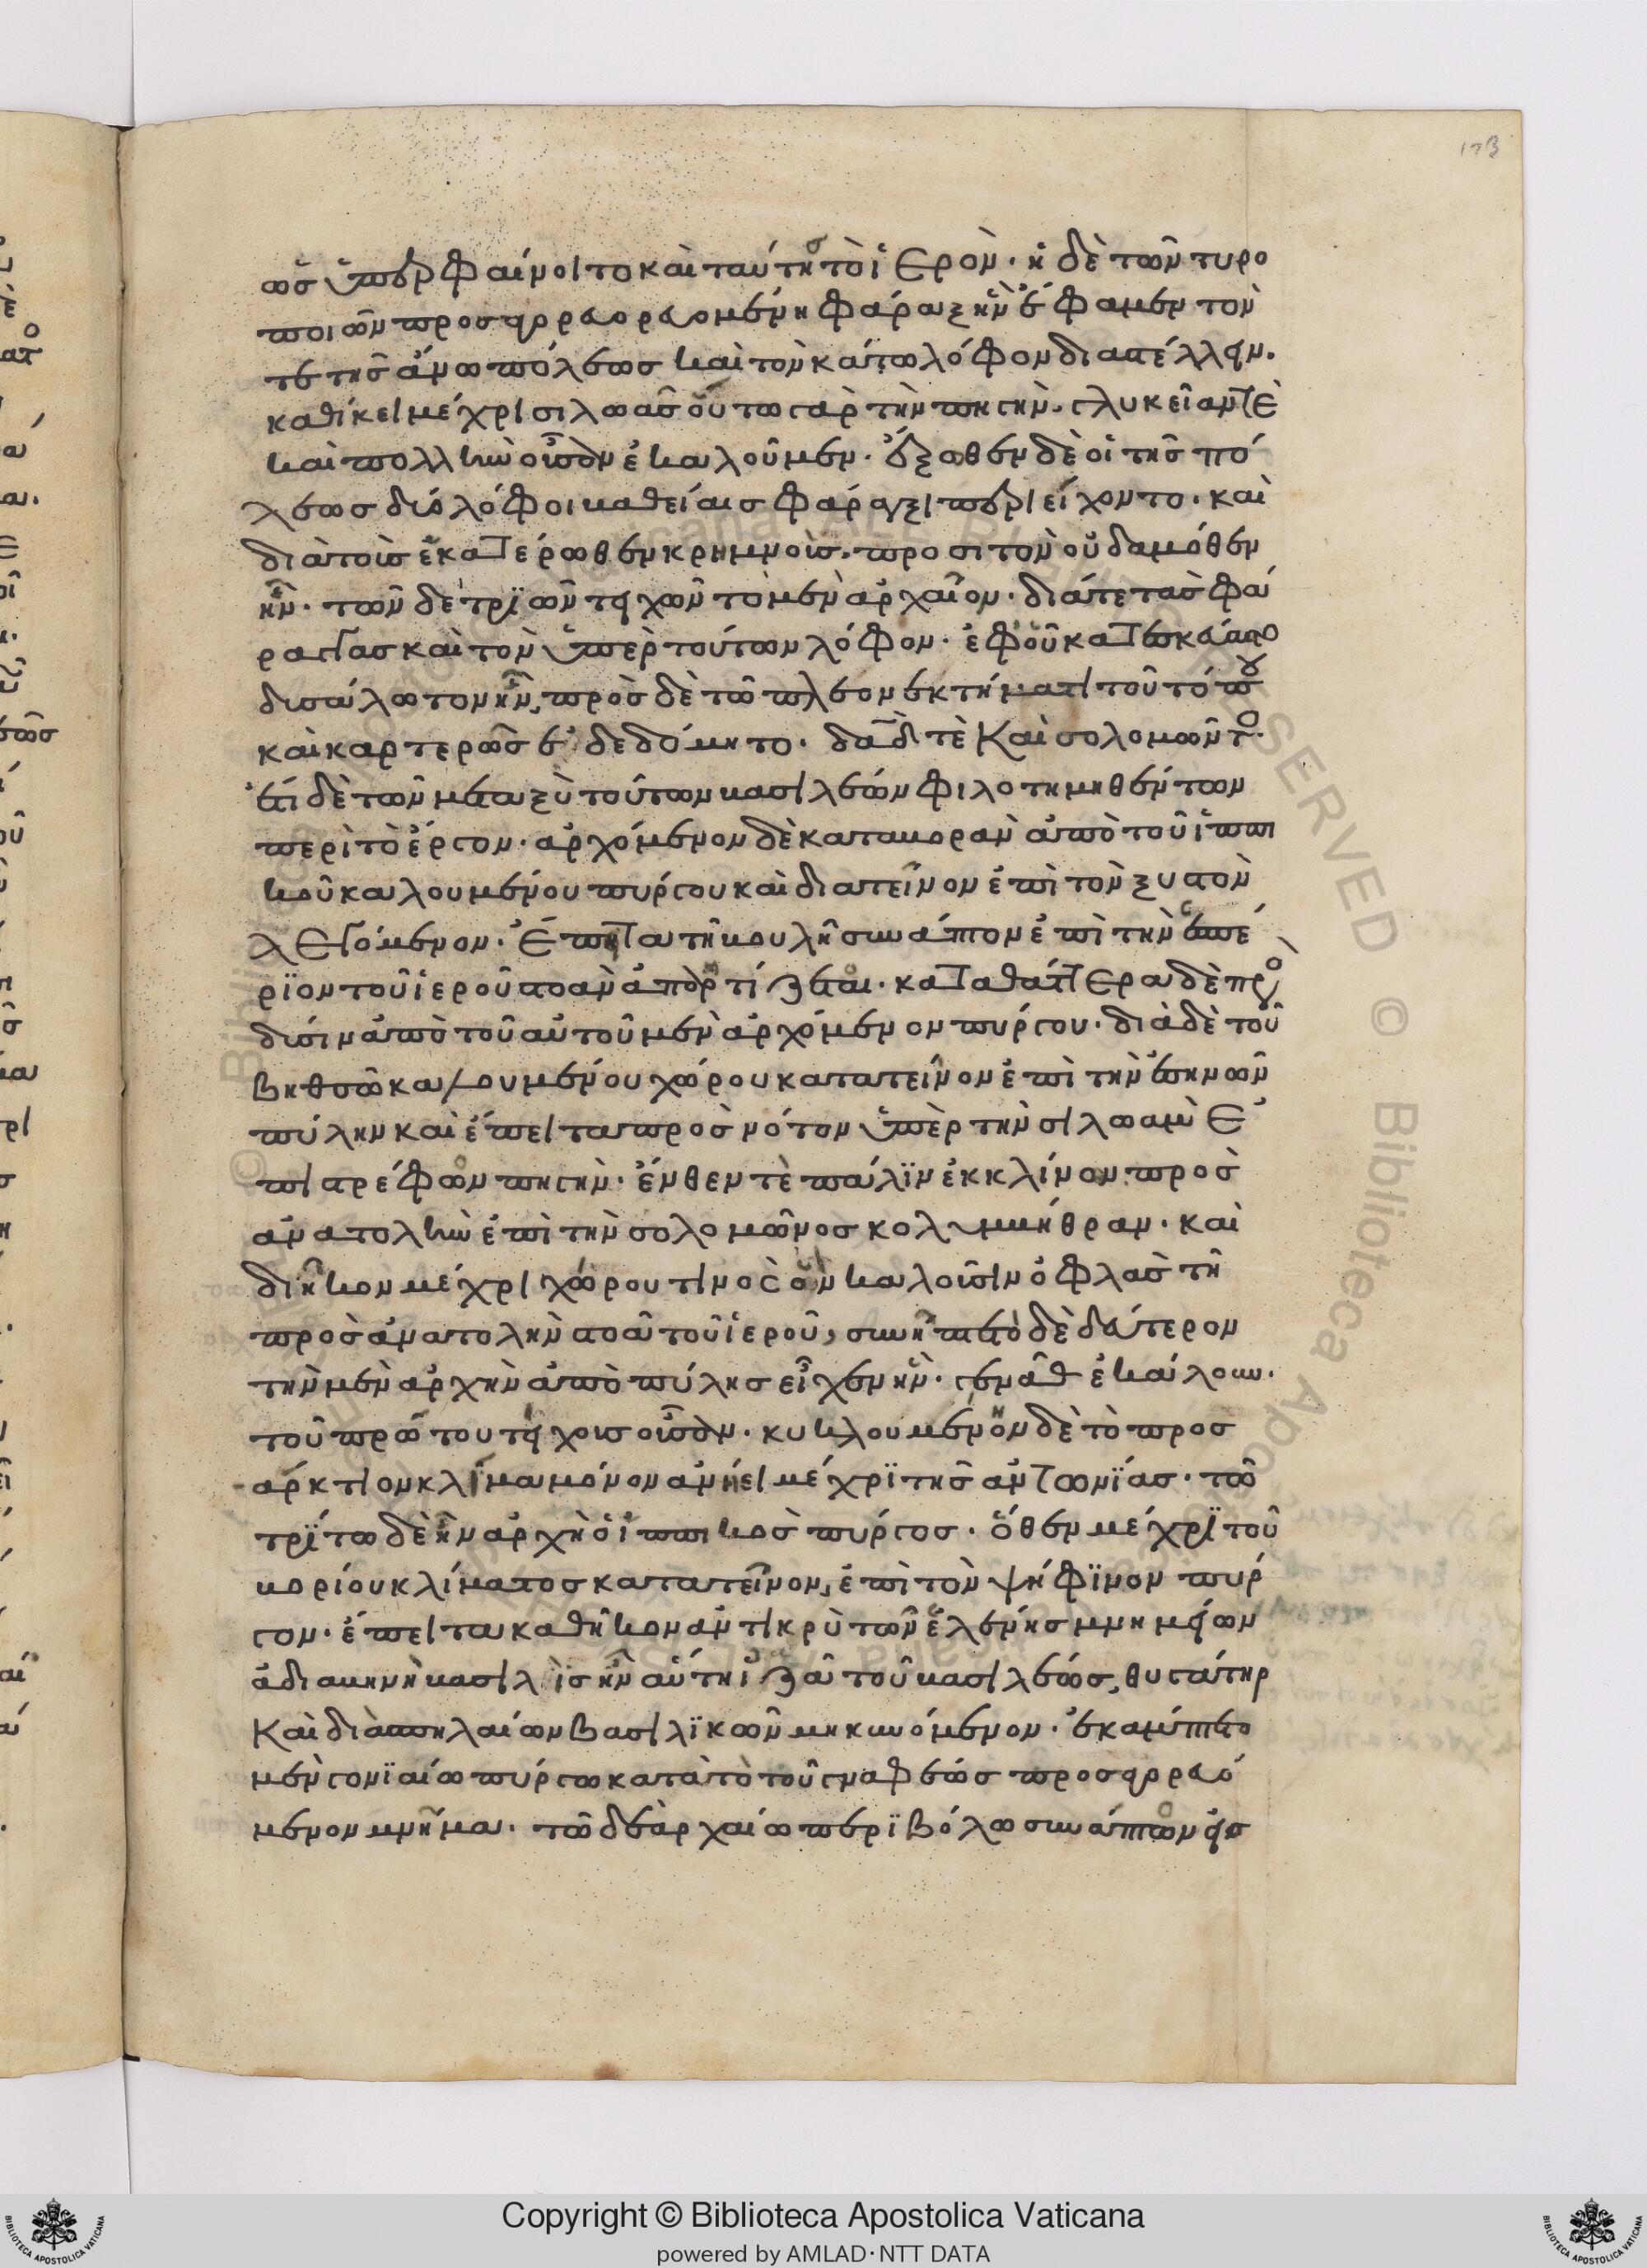 173
ὡς ὑπερφαίνοιτο καὶ ταύτης τὸ ἱερὸν. ἡ δὲ τῶν τυρο
ποιῶν προσαγορευομένη φάραγξ ἣν ἔφαμεν τόν
τε τῆς ἄνω πόλεως καὶ τὸν κάτω λόφον διαστέλλειν.
καθήκει μέχρι σιλωᾶς οὕτω γὰρ τὴν πηγὴν. γλυκεῖάν τε
καὶ πολλὴν οὖσαν ἐκαλοῦμεν. ἔξωθεν δὲ οἱ τῆς πό
λεως δύο λόφοι βαθείαις φάραγξι περιείχοντο. καὶ
διὰ τοὺς ἑκατέρωθεν κρημνοὺς. προσιτὸν οὐδαμόθεν
ἦν. τῶν δὲ τριῶν τειχῶν τὸ μὲν ἀρχαῖον. διά τε τὰς φά
ραγγας καὶ τὸν ὑπὲρ τούτων λόφον. ἐφ οὗ κατεσκεύαστο
δυσάλωτον ἦν, πρὸς δὲ τῷ πλεονεκτήματι τοῦ τόπου
καὶ καρτερῶς ἐδεδόμητο. δαδ τὲ Καὶ σολομῶντος
ἔτι δὲ τῶν μεταξὺ τούτων βασιλέων φιλοτιμηθέντων
περὶ τὸ ἔργον. ἀρχόμενον δὲ κατὰ βορᾶν ἀπὸ τοῦ ἱππι
κοῦ καλουμένου πύργου καὶ διατεῖνον ἐπὶ τὸν ξυστὸν
λεγόμενον. ἔπειτα τῇ βουλῇ συνάπτον ἐπὶ τὴν ἑσπέ
ριον τοῦ ἱεροῦ στοὰν ἀπαρτίζεται. κατὰ θάτερα δὲ πρὸς
δύσιν ἀπὸ τοῦ αὐτοῦ μὲν ἀρχόμενον πύργου. διὰ δὲ τοῦ
βηθσῶ καλουμένου χώρου κατατεῖνον ἐπὶ τὴν ἐσηνῶν
πύλην καὶ ἔπειτα πρὸς νότον ὑπὲρ τὴν σιλωὰμ ἐ
πιστρέφον πηγὴν. ἔνθεν τὲ πάλιν ἐκκλίνον πρὸς
ἀνατολὴν ἐπὶ τὴν σολομῶνος κολυμβήθραν. καὶ
διῆκον μέχρι χώρου τινὸς ὃν καλοῦσιν ὀφλὰς τῇ
πρὸς ἀνατολὴν στοᾷ τοῦ ἱεροῦ, συνῆπτε τὸ δὲ δεύτερον
τὴν μὲν ἀρχὴν ἀπὸ πύλης εἶχεν ἣν. γενὰθ ἐκάλουν.
τοῦ πρώτου τείχους οὖσαν. κυκλούμενον δὲ τὸ προσ
άρκτιον κλίμα μόνον ἀνῄει μέχρι τῆς ἀντωνίας. τῷ
τρίτω δὲ ἦν ἀρχὴ ὁ ἱππικὸς πύργος. ὅθεν μέχρι τοῦ
βορίου κλίματος κατατεῖνον, ἐπὶ τὸν ψήφινον πύρ
γον. ἔπειτα καθῆκον ἀντικρὺ τῶν ἑλένης μνημείων
ἀδιαβηνὴ βασιλὶς ἦν αὕτη ἰζᾶ τοῦ βασιλέως, θυγάτηρ
Καὶ διὰ σπηλαίων βασιλικῶν μηκυνόμενον. ἐκάμπτετο
μὲν γωνιαίω πύργω κατὰ τὸ τοῦ γναφέως προσαγορευό
μενον μνῆμα. τῷ δὲ ἀρχαίω περιβόλω συνάπτον εἰς
Copyright © Biblioteca Apostolica Vaticana
powered by AMLAD·NTT DATA